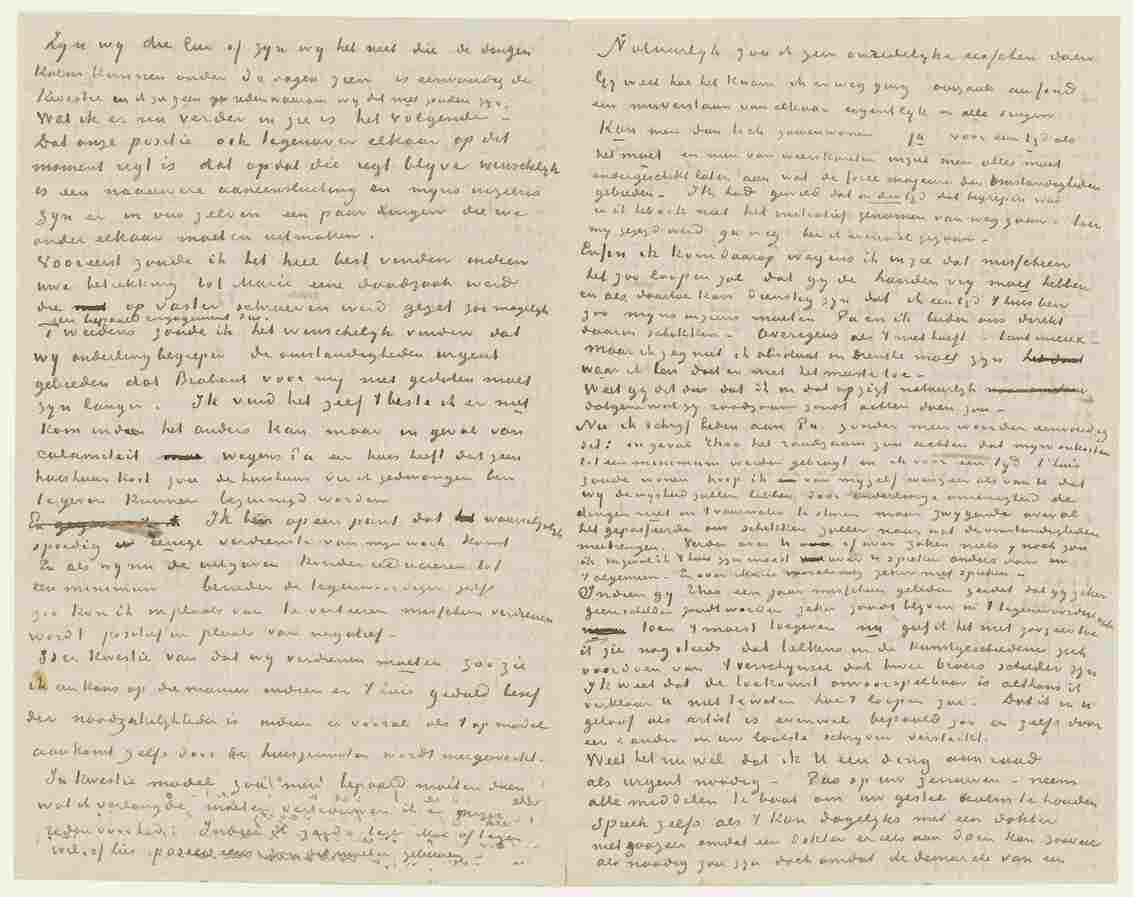 Zyn wy die lui of zyn wy het niet die de dingen
kalm kunnen onder de oogen zien is eenvoudig de
kwestie en ik zie geen reden waarom wy dat niet zouden zyn.
Wat ik er nu verder in zie is het volgende –
Dat onze positie ook tegenover elkaar op dit
moment regt is dat opdat die regt blyve wenschelyk
is een naauwere aaneensluiting en myns inziens
zyn er in ons zelven een paar dingen die we
onder elkaar moeten uitmaken.
Vooreerst zoude ik het heel best vinden indien
uwe betrekking tot Marie eene daadzaak werd
die op vaster schroeven werd gezet zoo mogelyk
een bepaald engagement dus.
Tweedens zoude ik het wenschelyk vinden dat
wy onderling begrepen de omstandigheden urgent
gebieden dat Brabant voor my niet gesloten moet
zyn langer. Ik vind het zelf 't beste ik er niet
kom indien het anders kan maar in geval van
calamiteit wegens Pa een huis heeft dat geen
huishuur kost zou de huishuur die ik gedwongen ben
te geven kunnen bezuinigd worden
Ik ben op een punt dat waarschynlyk
spoedig eenige verdienste van myn werk komt
En als wy nu de uitgaven konden reduceeren tot
een minimum beneden de tegenwoordige zelfs
zoo kon ik in plaats van te verteeren misschien verdienen
wordt positief in plaats van negatief –
Is er kwestie van dat wy verdienen moeten zoo zie
ik een kans op die manier indien er t'huis geduld besef
der noodzakelykheden is indien er vooral als 't op model
aankomt zelfs door de huisgenooten wordt meegewerkt.
In kwestie model zou men bepaald moeten doen
wat ik verlangde, moeten vertrouwen ik er myne
reden voor heb. Indien ik zegde tegen Moe of tegen
Wil of Lies poseer eens zou dat moeten gebeuren –
Natuurlyk zou ik geen onredelyke eischen doen
Gy weet hoe het kwam ik er weg ging oorzaak au fond
een misverstaan van elkaar eigentlyk in alle dingen
Kan men dan toch zamenwonen Ja voor een tyd als
het moet en men van weerskanten inziet men alles moet
ondergeschikt laten aan wat de force majeure der omstandigheden
gebieden – Ik had gewild dat in der tyd dat begrepen was
en ik heb ook niet het initiatief genomen van weg gaan – toen
my gezegd werd ga weg ben ik evenwel gegaan –
Enfin ik kom daarop wegens ik inzie dat misschien
het zoo loopen zal dat gy de handen vry moet hebben
en als daartoe kan dienstig zyn dat ik een tyd t'huis ben
zoo myns inziens moeten Pa en ik beiden ons direkt
daarin schikken – Overigens als 't niet hoeft – tant mieux –
Maar ik zeg niet ik absoluut in Drenthe moet zyn
waar ik ben doet er niet het meeste toe –
Weet gy dit dus dat ik in dat opzigt natuurlyk
datgene wat gy raadzaam zoudt achten doen zou –
Nu ik schryf heden aan Pa zonder meer woorden eenvoudig
dit: in geval Theo het raadzaam zou achten dat myn onkosten
tot een minimum werden gebragt en ik voor een tyd t'huis
zoude wonen hoop ik van myzelf weigeren als van U dat
wy de wysheid zullen hebben, door onderlinge oneenigheid de
dingen niet in 't verwarde te sturen maar zwygende over al
het gepasseerde ons schikken zullen naar wat de omstandigheden
meebrengen. Verder over U of over zaken niets & noch zou
ik ingeval ik t'huis zyn moest over U spreken anders dan in
't algemeen – En over Marie zeker niet spreken –
Indien gy Theo een jaar misschien geleden zeidet dat gy zeker
geen schilder zoudt worden zeker zoudt blyven in 't tegenwoordige vak
toen 't moest toegeven nu geef ik het niet zoozeer toe
ik zie nog steeds dat telkens in de kunstgeschiedenis zich
voordoen van 't verschynsel dat twee broers schilder zyn
Ik weet dat de toekomst onvoorspelbaar is althans ik
verklaar U niet te weten hoe 't loopen zal. Dat ik in U
geloof als artist is evenwel bepaald zoo en zelfs door
een & ander in uw laatste schryven versterkt.
Weet het nu wel dat ik U een ding aanraad
als urgent noodig – Pas op uw zenuwen – neem
alle middelen te baat om uw gestel kalm te houden
spreek zelfs als 't kan dagelyks met een dokter
niet zoozeer omdat een dokter er iets aan doen kan zooveel
als noodig zou zyn doch omdat de demarche van een